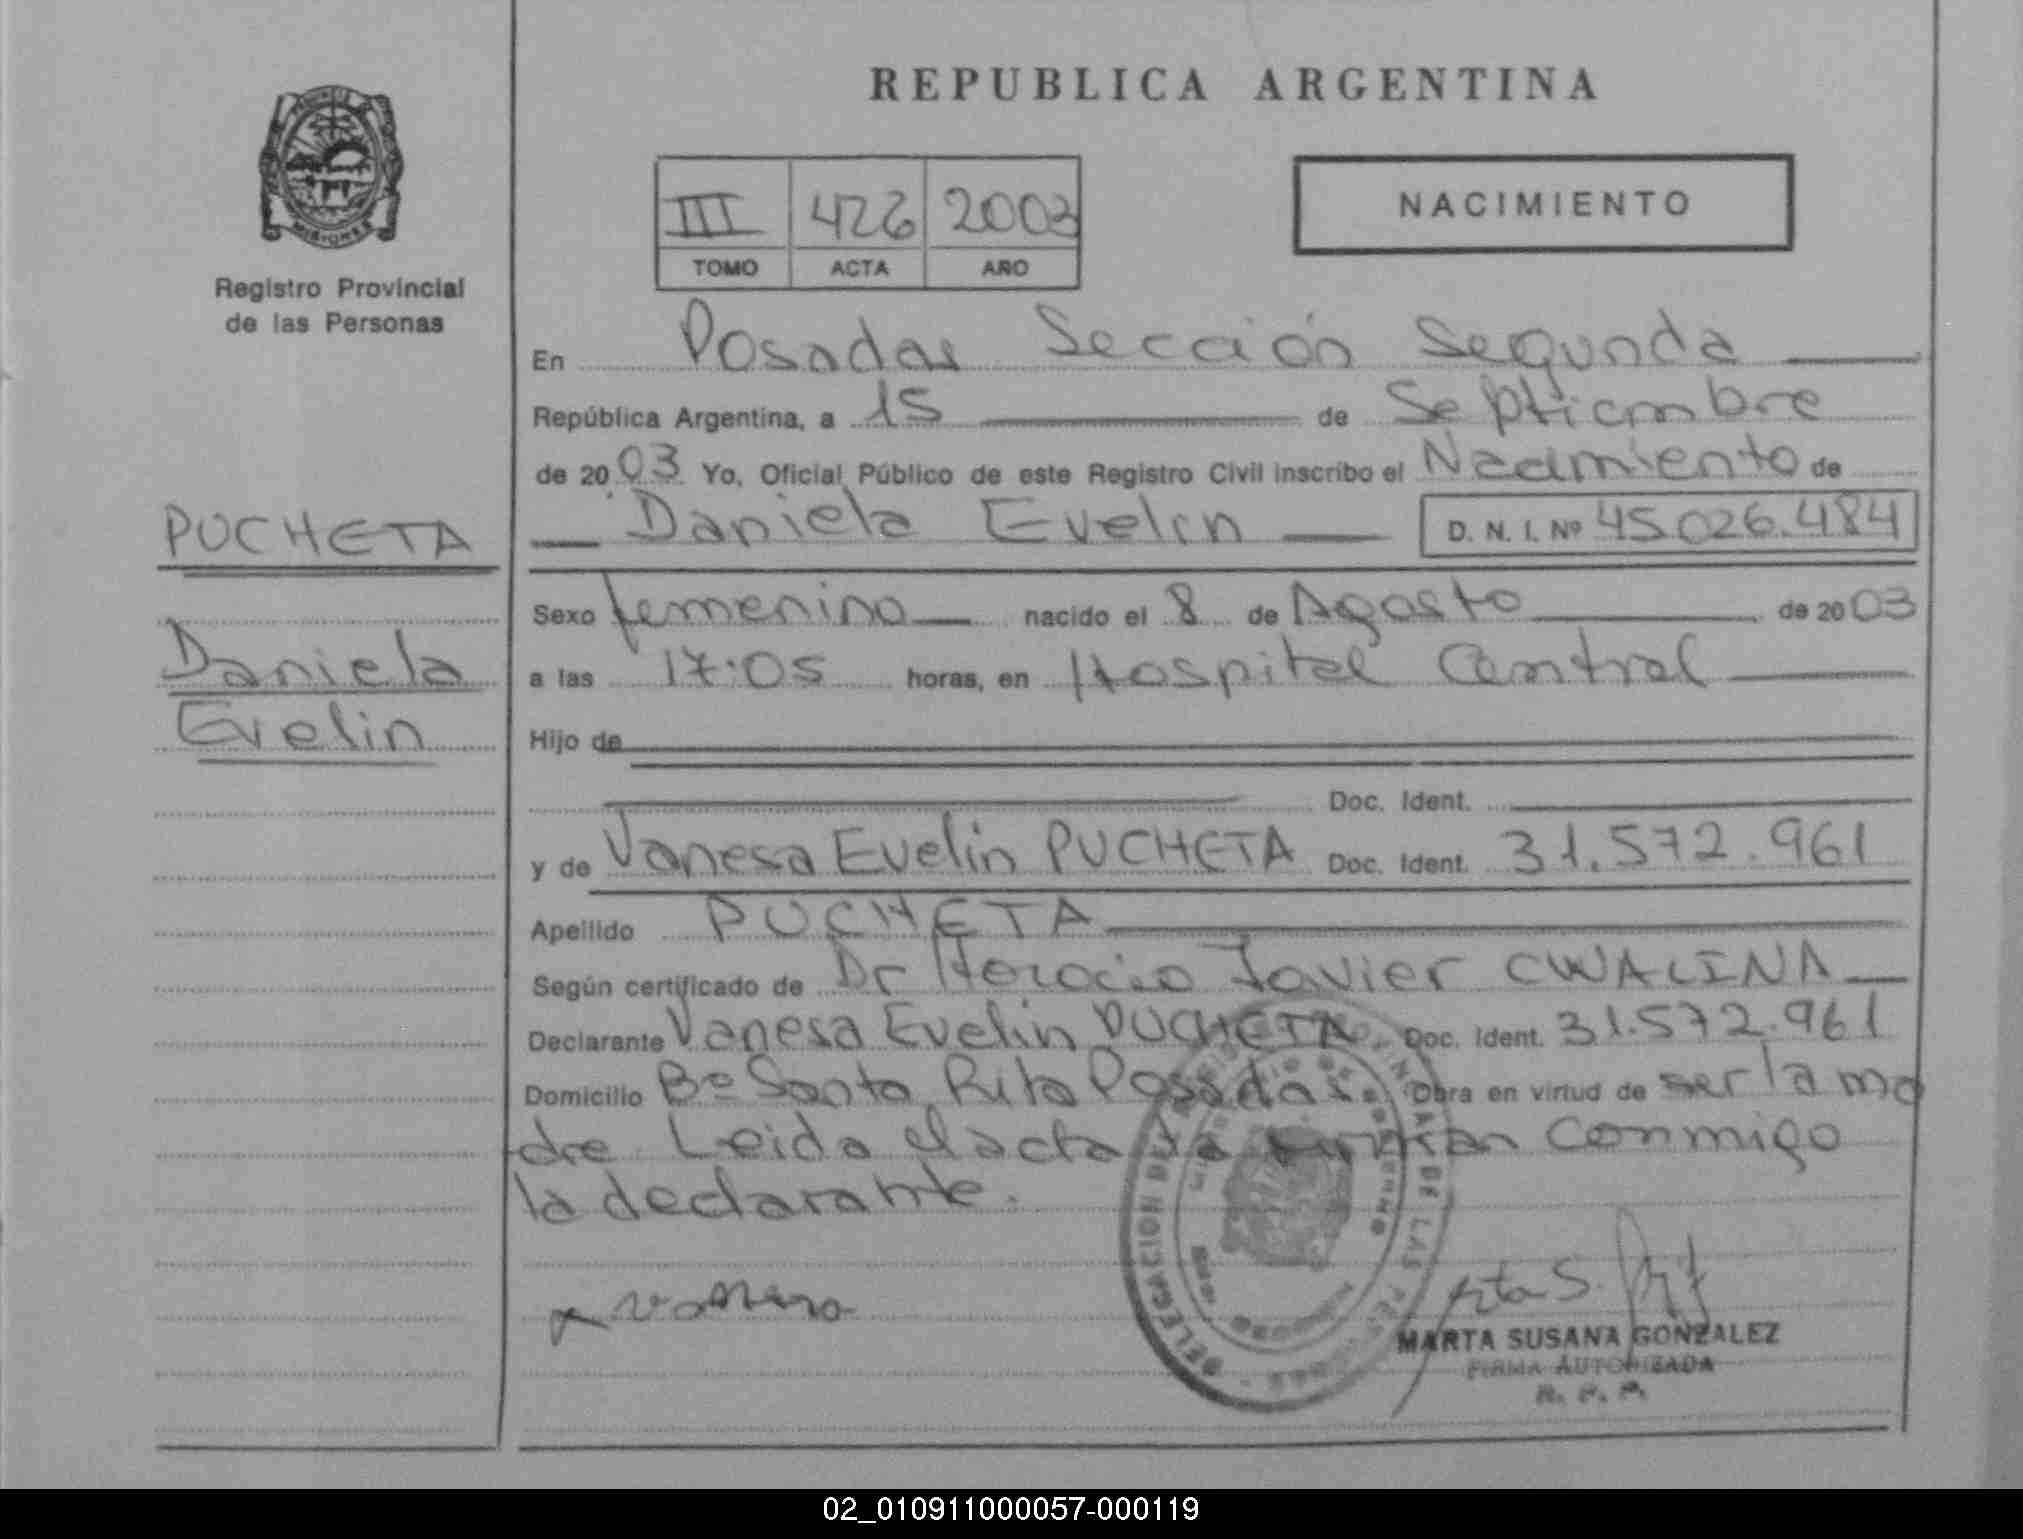 REPUBLICA ARGENTINA
MISIONES
Registro Provincial
de las Personas
NACIMIENTO
III 426 2003
TOMO ACTA AÑO
En Posadas Sección Segunda
República Argentina, a 15 de Septiembre
de 2003 Yo, Oficial Público de este Registro Civil inscribo el Nacimiento de
Daniela Evelin D. N. I. Nº 45.026.484
PUCHETA
Daniela
Evelin
Sexo femenino nacido el 8 de Agosto de 2003
a las 17:05 horas, en Hospital Central
Hijo de
Doc. Ident.
y de Vanesa Evelin PUCHETA Doc. Ident. 31.572.961
Apellido PUCHETA
Según certificado de Dr Horacio Javier CWALINA
Declarante Vanesa Evelin PUCHETA Doc. Ident. 31.572.961
Domicilio Bº Santa Rita Posadas Obra en virtud de ser la ma
dre. Leida el acta la firman conmigo
la declarante.
DELEGACION DEL REGISTRO PROVINCIAL DE LAS PERSONAS
MARTA SUSANA GONZALEZ
FIRMA AUTORIZADA
R. P. P.
02_010911000057-000119